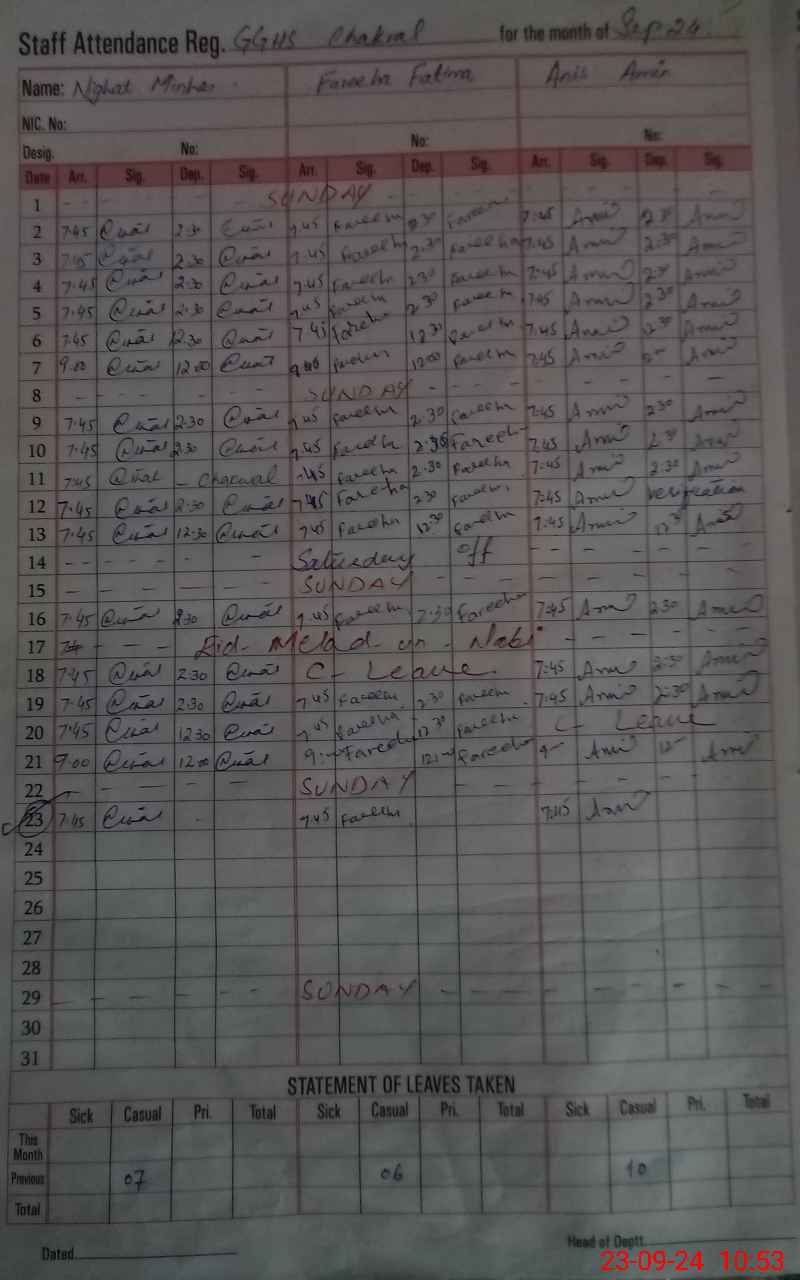 Staff Attendance Reg. GGHS Chakral for the month of Sep 24
Name: Nighat Minhas Fareeha Fatima Anis Amin
NIC. No:
Desig. No: No: No:
Date Arr. Sig. Dep. Sig. Arr. Sig. Dep. Sig. Arr. Sig. Dep. Sig.
1 - - - SUNDAY - - - -
2 7:45 2:30 7:45 Fareeha 2:30 Fareeha 7:45 Amin 2:30 Amin
3 7:45 2:30 7:45 Fareeha 2:30 Fareeha 7:45 Amin 2:30 Amin
4 7:45 2:30 7:45 Fareeha 2:30 Fareeha 7:45 Amin 2:30 Amin
5 7:45 2:30 7:45 Fareeha 2:30 Fareeha 7:45 Amin 2:30 Amin
6 7:45 12:30 7:45 Fareeha 12:30 Fareeha 7:45 Amin Amin
7 9:00 12:00 Fareeha 12:00 Fareeha 7:45 Amin Amin
8 - - - - SUNDAY - - - - - -
9 7:45 2:30 7:45 Fareeha 2:30 Fareeha 7:45 Amin 2:30 Amin
10 7:45 2:30 7:45 Fareeha 2:30 Fareeha 7:45 Amin 2:30 Amin
11 7:45 - Chacwal 7:45 Fareeha 2:30 Fareeha 7:45 Amin 2:30 Amin
12 7:45 2:30 7:45 Fareeha 2:30 Fareeha 7:45 Amin verification
13 7:45 12:30 7:45 Fareeha 12:30 Fareeha 7:45 Amin 12:30 Amin
14 - - - - - Saturday off - - - -
15 - - - - SUNDAY - - - - - -
16 7:45 2:30 7:45 Fareeha 2:30 Fareeha 7:45 Amin 2:30 Amin
17 - - Eid Melad un Nabi - - - -
18 7:45 2:30 C- Leave. 7:45 Amin 2:30 Amin
19 7:45 2:30 7:45 Fareeha 2:30 Fareeha 7:45 Amin 2:30 Amin
20 7:45 12:30 7:45 Fareeha 12:30 Fareeha C- Leave
21 9:00 12:00 9:- Fareeha 12:- Fareeha 9- Amin 12- Amin
22 - - - - SUNDAY - - - - - -
23 7:45 7:45 Fareeha 7:45 Amin
24
25
26
27
28
29 - - - - SUNDAY - - - - - - -
30
31
STATEMENT OF LEAVES TAKEN
Sick Casual Pri. Total Sick Casual Pri. Total Sick Casual Pri. Total
This Month
Previous 07 06 10
Total
Dated Head of Deptt.
23-09-24 10:53